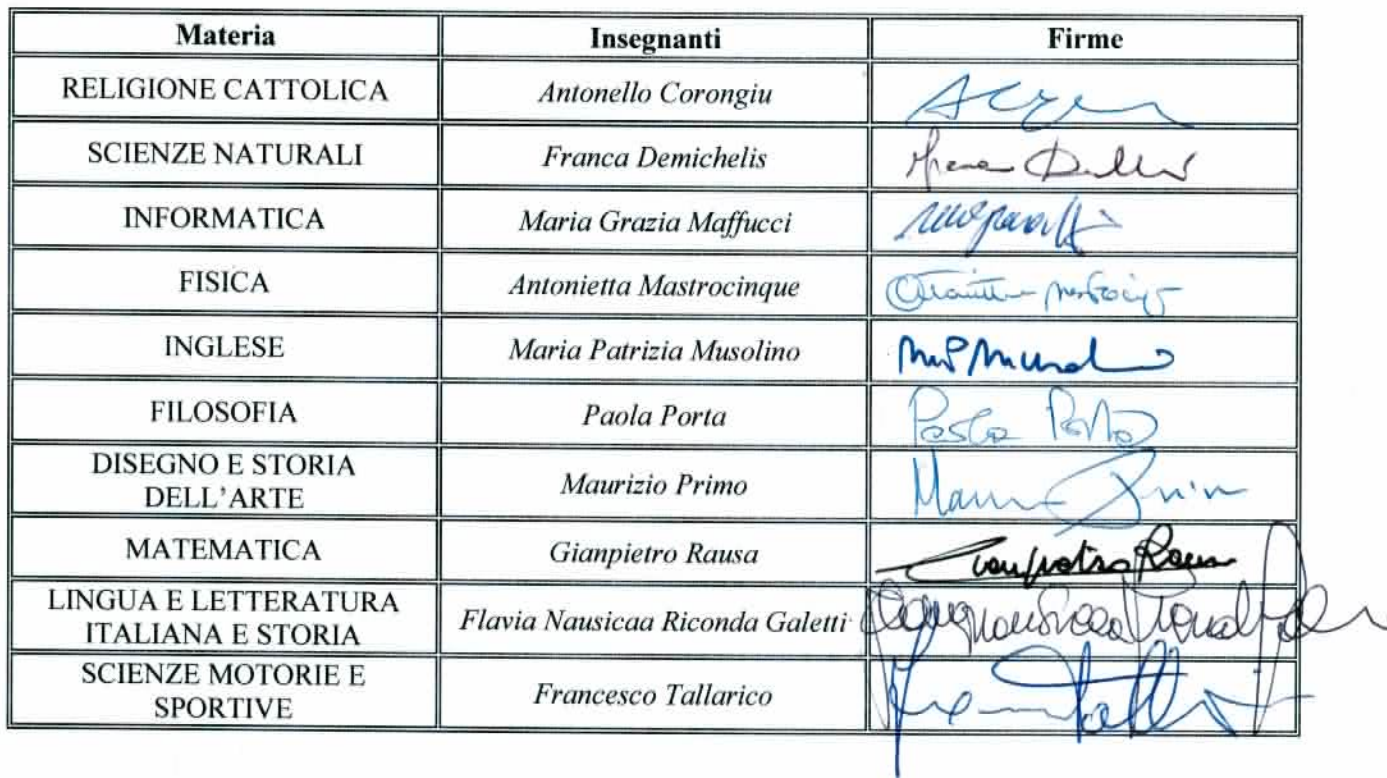 Materia Insegnanti Firme
RELIGIONE CATTOLICA Antonello Corongiu
SCIENZE NATURALI Franca Demichelis
INFORMATICA Maria Grazia Maffucci
FISICA Antonietta Mastrocinque
INGLESE Maria Patrizia Musolino
FILOSOFIA Paola Porta Paola Porta
DISEGNO E STORIA
DELL'ARTE Maurizio Primo
MATEMATICA Gianpietro Rausa Gianpietro Rausa
LINGUA E LETTERATURA
ITALIANA E STORIA Flavia Nausicaa Riconda Galetti
SCIENZE MOTORIE E
SPORTIVE Francesco Tallarico